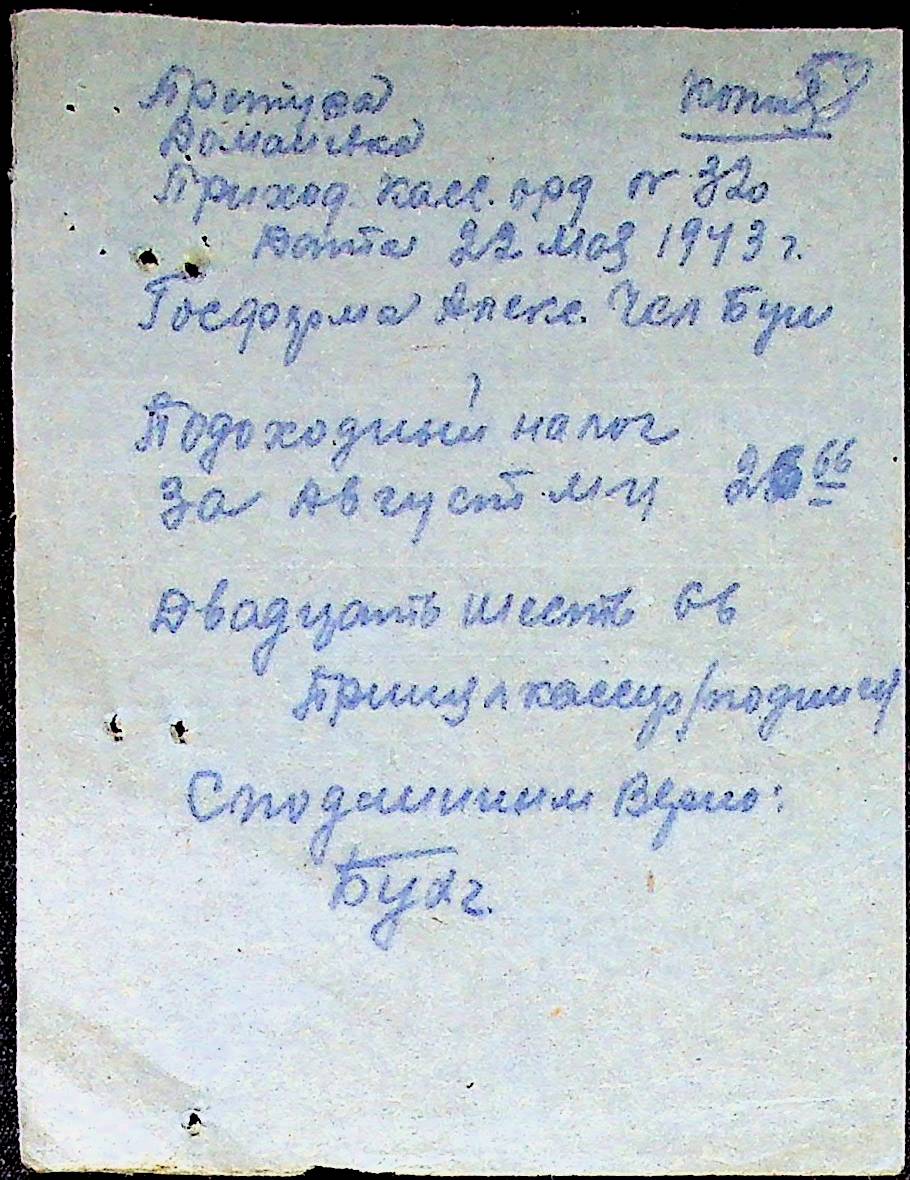 Копия
Доманевка
Приход. касс. орд № 320
Дата 22 мая 1943 г.
Госферма Алекс.
Подоходный налог
За Август м-ц 26 66
Двадцать шесть 66
Принял кассир /подпись/
С подлинным Верно:
Бухг.